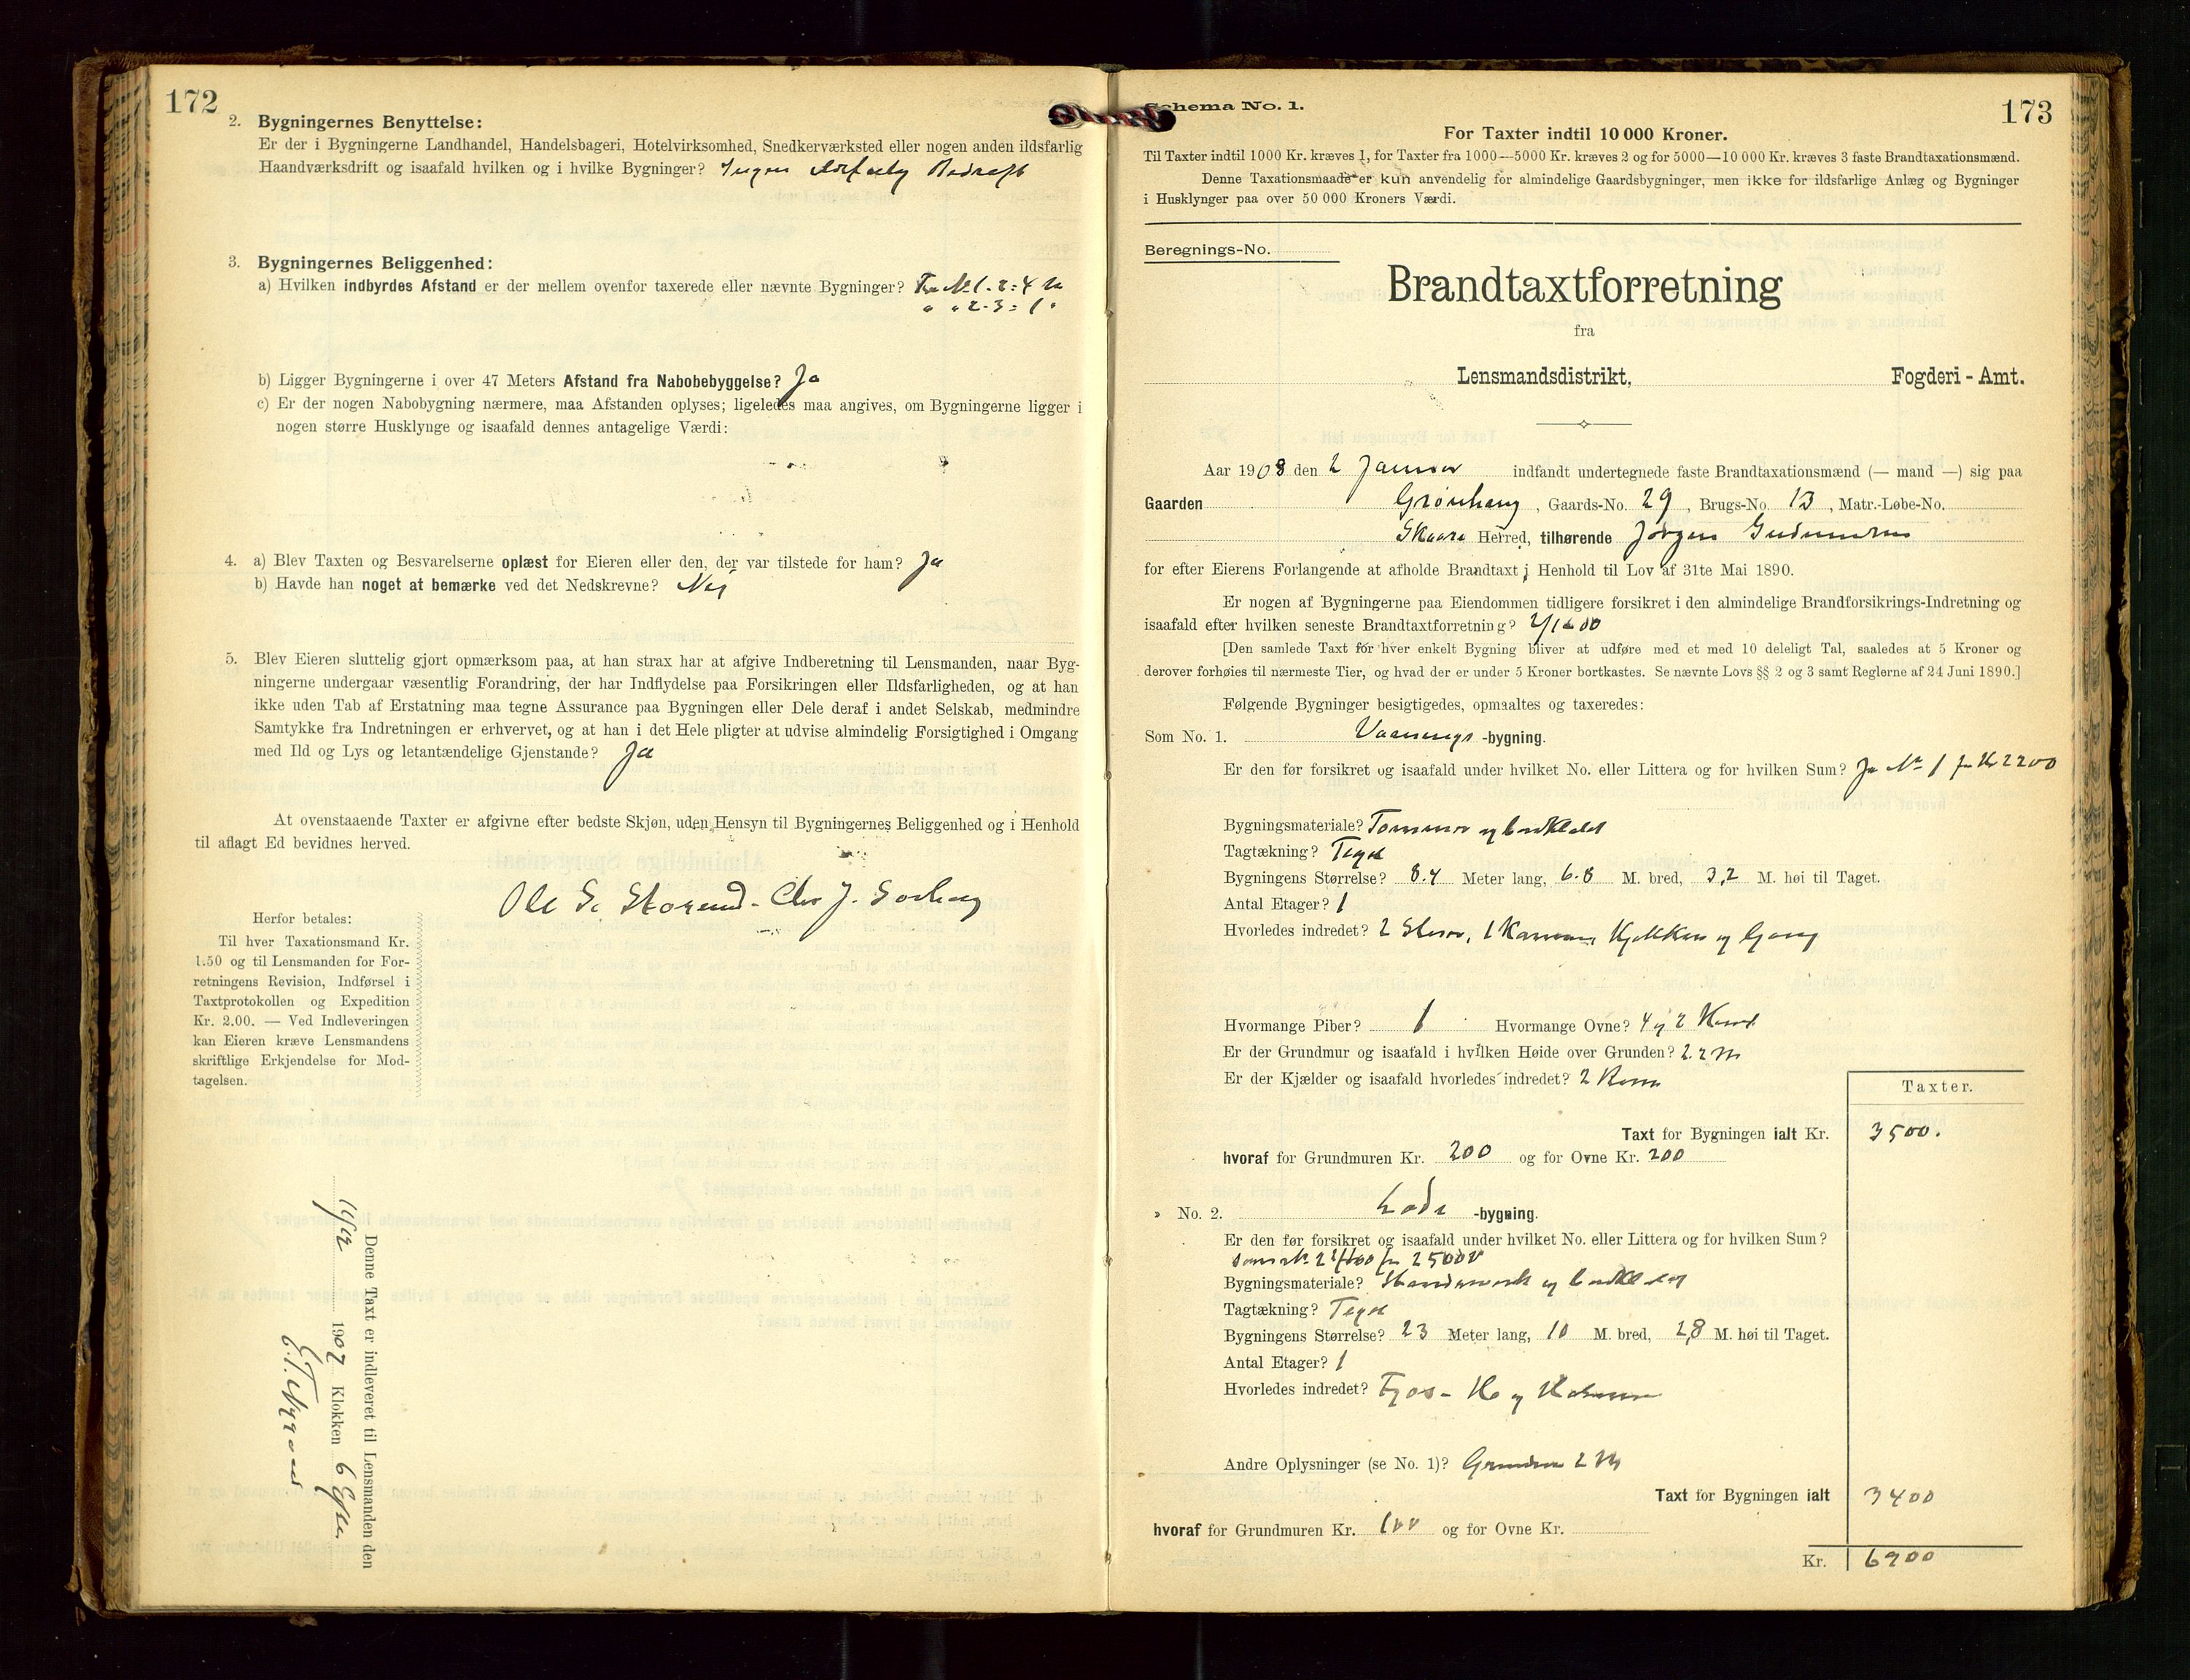 172
2. Bygningernes Benyttelse:
Er der i Bygningerne Landhandel, Handelsbageri, Hotelvirksomhed, Snedkerværksted eller nogen anden ildsfarlig
Haandværksdrift og isaafald hvilken og i hvilke Bygninger? Ingen Bedreft
3. Bygningernes Beliggenhed:
a) Hvilken indbyrdes Afstand er der mellem ovenfor taxerede eller nævnte Bygninger? Fra No 1 - 2 = 4 m
" " 2 - 3 = 1 "
b) Ligger Bygningerne i over 47 Meters Afstand fra Nabobebyggelse? Ja
c) Er der nogen Nabobygning nærmere, maa Afstanden oplyses; ligeledes maa angives, om Bygningerne ligger i
nogen større Husklynge og isaafald dennes antagelige Værdi:
4. a) Blev Taxten og Besvarelserne oplæst for Eieren eller den, der var tilstede for ham? Ja
b) Havde han noget at bemærke ved det Nedskrevne? Nei
5. Blev Eieren sluttelig gjort opmærksom paa, at han strax har at afgive Indberetning til Lensmanden, naar Byg-
ningerne undergaar væsentlig Forandring, der har Indflydelse paa Forsikringen eller Ildsfarligheden, og at han
ikke uden Tab af Erstatning maa tegne Assurance paa Bygningen eller Dele deraf i andet Selskab, medmindre
Samtykke fra Indretningen er erhvervet, og at han i det Hele pligter at udvise almindelig Forsigtighed i Omgang
med Ild og Lys og letantændelige Gjenstande? Ja
At ovenstaaende Taxter er afgivne efter bedste Skjøn, uden Hensyn til Bygningernes Beliggenhed og i Henhold
til aflagt Ed bevidnes herved.
Ole S. Chr J.
Herfor betales:
Til hver Taxationsmand Kr.
1.50 og til Lensmanden for For-
retningens Revision, Indførsel i
Taxtprotokollen og Expedition
Kr. 2.00. — Ved Indleveringen
kan Eieren kræve Lensmandens
skriftlige Erkjendelse for Mod-
tagelsen.
Denne Taxt er indleveret til Lensmanden den
14/12 1907 Klokken 6 Eftm.
173
Schema No. 1.
For Taxter indtil 10 000 Kroner.
Til Taxter indtil 1000 Kr. kræves 1, for Taxter fra 1000—5000 Kr. kræves 2 og for 5000—10 000 Kr. kræves 3 faste Brandtaxationsmænd.
Denne Taxationsmaade er kun anvendelig for almindelige Gaardsbygninger, men ikke for ildsfarlige Anlæg og Bygninger
i Husklynger paa over 50 000 Kroners Værdi.
Beregnings-No.
Brandtaxtforretning
fra
Lensmandsdistrikt, Fogderi - Amt.
Aar 1908 den 2 Januar indfandt undertegnede faste Brandtaxationsmænd (— mand —) sig paa
Gaarden Grønhaug, Gaards-No. 29, Brugs-No. 13, Matr.-Løbe-No.
Skaare Herred, tilhørende Jørgen
for efter Eierens Forlangende at afholde Brandtaxt i Henhold til Lov af 31te Mai 1890.
Er nogen af Bygningerne paa Eiendommen tidligere forsikret i den almindelige Brandforsikrings-Indretning og
isaafald efter hvilken seneste Brandtaxtforretning?
[Den samlede Taxt for hver enkelt Bygning bliver at udføre med et med 10 deleligt Tal, saaledes at 5 Kroner og
derover forhøies til nærmeste Tier, og hvad der er under 5 Kroner bortkastes. Se nævnte Lovs §§ 2 og 3 samt Reglerne af 24 Juni 1890.]
Følgende Bygninger besigtigedes, opmaaltes og taxeredes:
Som No. 1. Vaanings -bygning.
Er den før forsikret og isaafald under hvilket No. eller Littera og for hvilken Sum? Ja No 1 for Kr 2200
Bygningsmateriale? Tømmer og bordklædt
Tagtækning? Tegl
Bygningens Størrelse? 8.4 Meter lang, 6.8 M. bred, 3,2 M. høi til Taget.
Antal Etager? 1
Hvorledes indredet? 2 Stuer, 1 Kammer, Kjøkken og Gang
Hvormange Piber? 1 Hvormange Ovne? 4 og 2 Komf.
Er der Grundmur og isaafald i hvilken Høide over Grunden? 2.2 m
Er der Kjælder og isaafald hvorledes indredet? 2 Rom
Taxter.
Taxt for Bygningen ialt Kr. 3500.
hvoraf for Grundmuren Kr. 200 og for Ovne Kr. 200
" No. 2. Løde -bygning.
Er den før forsikret og isaafald under hvilket No. eller Littera og for hvilken Sum?
Bygningsmateriale? og bordklædt
Tagtækning? Tegl
Bygningens Størrelse? 23 Meter lang, 10 M. bred, 2,8 M. høi til Taget.
Antal Etager? 1
Hvorledes indredet? Fjøs - Hø og
Andre Oplysninger (se No. 1)? Grundmur 2 M
Taxt for Bygningen ialt 3400
hvoraf for Grundmuren Kr. 100 og for Ovne Kr.
Kr. 6900